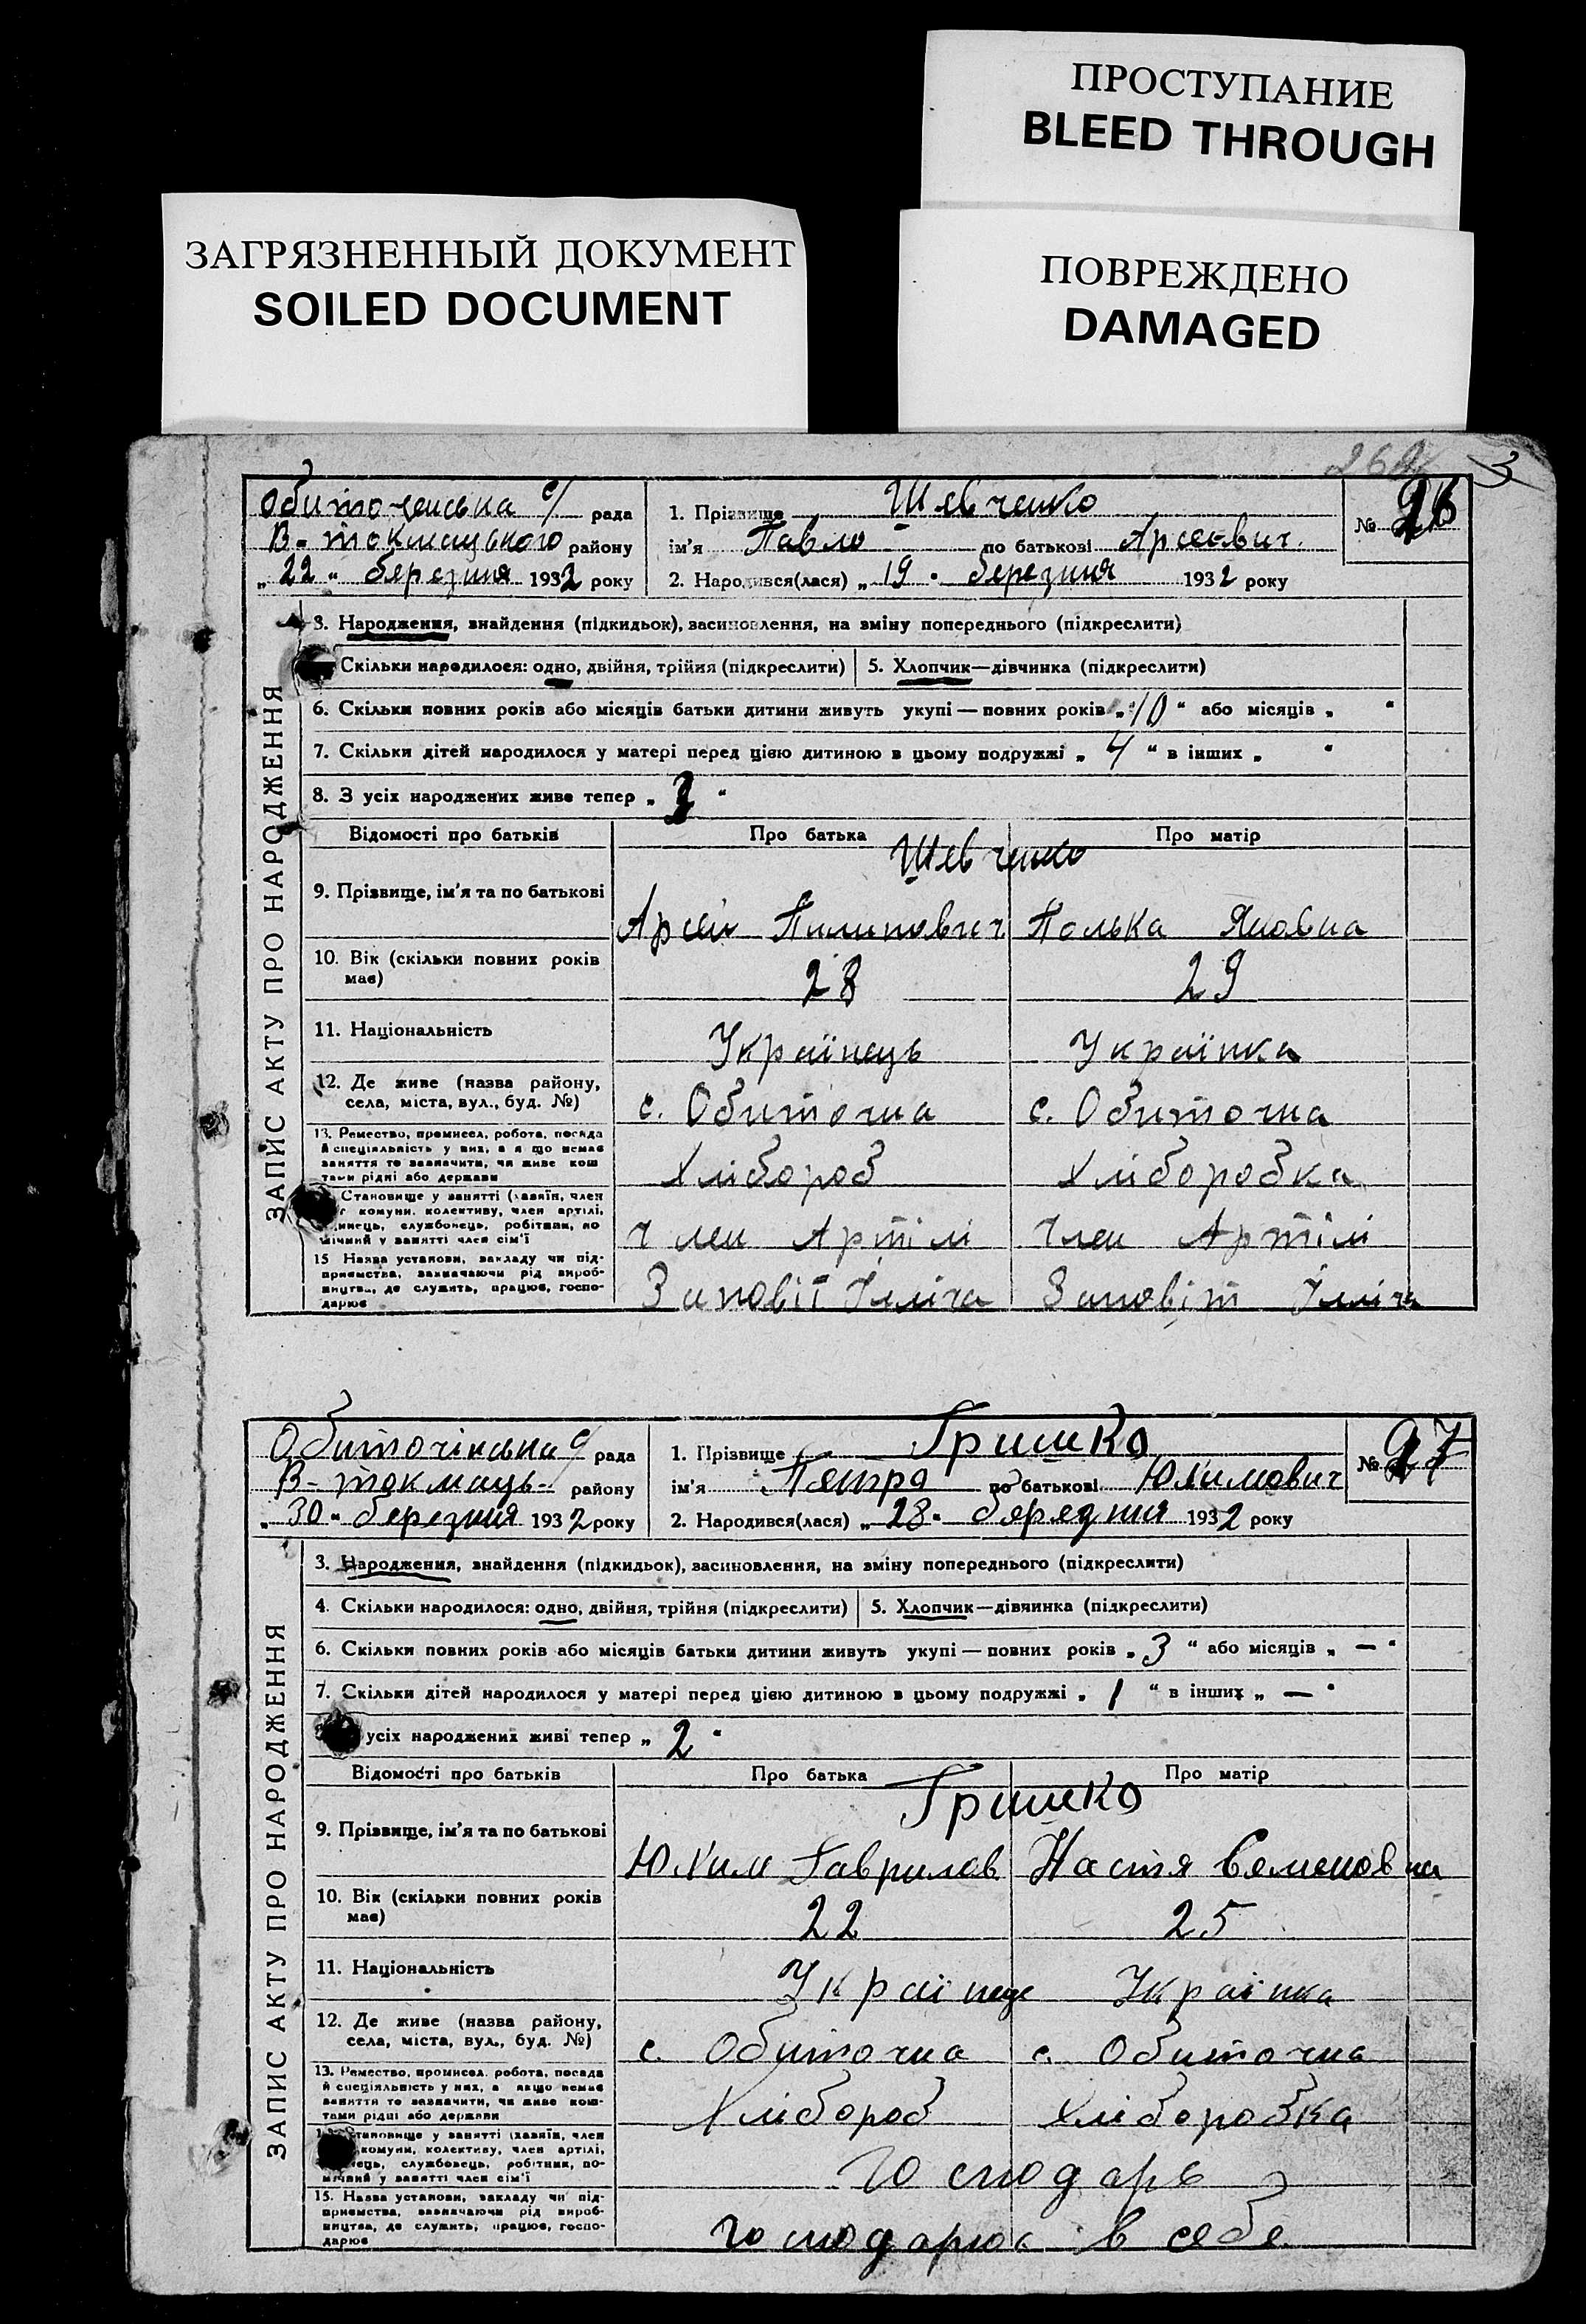 ПРОСТУПАНИЕ
BLEED THROUGH
ЗАГРЯЗНЕННЫЙ ДОКУМЕНТ
SOILED DOCUMENT
ПОВРЕЖДЕНО
DAMAGED
3
Обиточенська с/ рада
В-токмацького району
„22" березня 1932 року
1. Прізвище Шевченко
ім'я Павло по батькові Арсеєвич.
2. Народився(лася) „19" березня 1932 року
№ 26
ЗАПИС АКТУ ПРО НАРОДЖЕННЯ
3. Народження, знайдення (підкидьок), засиновлення, на зміну попереднього (підкреслити)
Скільки народилося: одно, двійня, трійня (підкреслити) 5. Хлопчик—дівчинка (підкреслити)
6. Скільки повних років або місяців батьки дитини живуть укупі — повних років „10" або місяців „ "
7. Скільки дітей народилося у матері перед цією дитиною в цьому подружжі „4" в інших „ "
8. З усіх народжених живе тепер „ "
Відомості про батьків Про батька Про матір
Шевченко
9. Прізвище, ім'я та по батькові
Арсей Пилипович Полька Яковна
10. Вік (скільки повних років має) 28 29
11. Національність Українець Українка
12. Де живе (назва району, села, міста, вул., буд. №) с. Обиточна с. Обиточна
13. Ремество, промисел, робота, посада
й спеціяльність у них, а я що немає
заняття то зазначити, чи живе кош
тами рідні або держави
Хлібороб Хліборобка
Становище у занятті (хазяїн, член
комуни, колективу, член артілі,
службовець, робітник, по
мічний у занятті член сім'ї
Член Артілі Член Артілі
15 Назва установи, закладу чи під-
приємства, зазначаючи рід вироб-
ництва, де служить, працює, госпо-
дарює
Заповіт Ілліча Заповіт Ілліча
Обиточінська с/ рада
В-токмаць- району
„30" березня 1932 року
1. Прізвище Гришко
ім'я Петро по батькові Юхимович
2. Народився(лася) „28" березня 1932 року
№ 27
ЗАПИС АКТУ ПРО НАРОДЖЕННЯ
3. Народження, знайдення (підкидьок), засиновлення, на зміну попереднього (підкреслити)
4. Скільки народилося: одно, двійня, трійня (підкреслити) 5. Хлопчик—дівчинка (підкреслити)
6. Скільки повних років або місяців батьки дитини живуть укупі — повних років „3" або місяців „—"
7. Скільки дітей народилося у матері перед цією дитиною в цьому подружжі „1" в інших „—"
усіх народжених живі тепер „2"
Відомості про батьків Про батька Про матір
Гришко
9. Прізвище, ім'я та по батькові
Юхим Гаврилов Настя Семеновна
10. Вік (скільки повних років має) 22 25
11. Національність Українець Українка
12. Де живе (назва району, села, міста, вул., буд. №) с. Обиточна с. Обиточна
13. Ремество, промисел, робота, посада
й спеціяльність у них, а якщо немає
заняття то зазначити, чи живе кош-
тами рідні або держави
Хлібороб Хліборобка
Становище у занятті (хазяїн, член
комуни, колективу, член артілі,
службовець, робітник, по-
мічний у занятті член сім'ї
Господарь
15. Назва установи, закладу чи під-
приємства, зазначаючи рід вироб-
ництва, де служить, працює, госпо-
дарює
господарює в себе